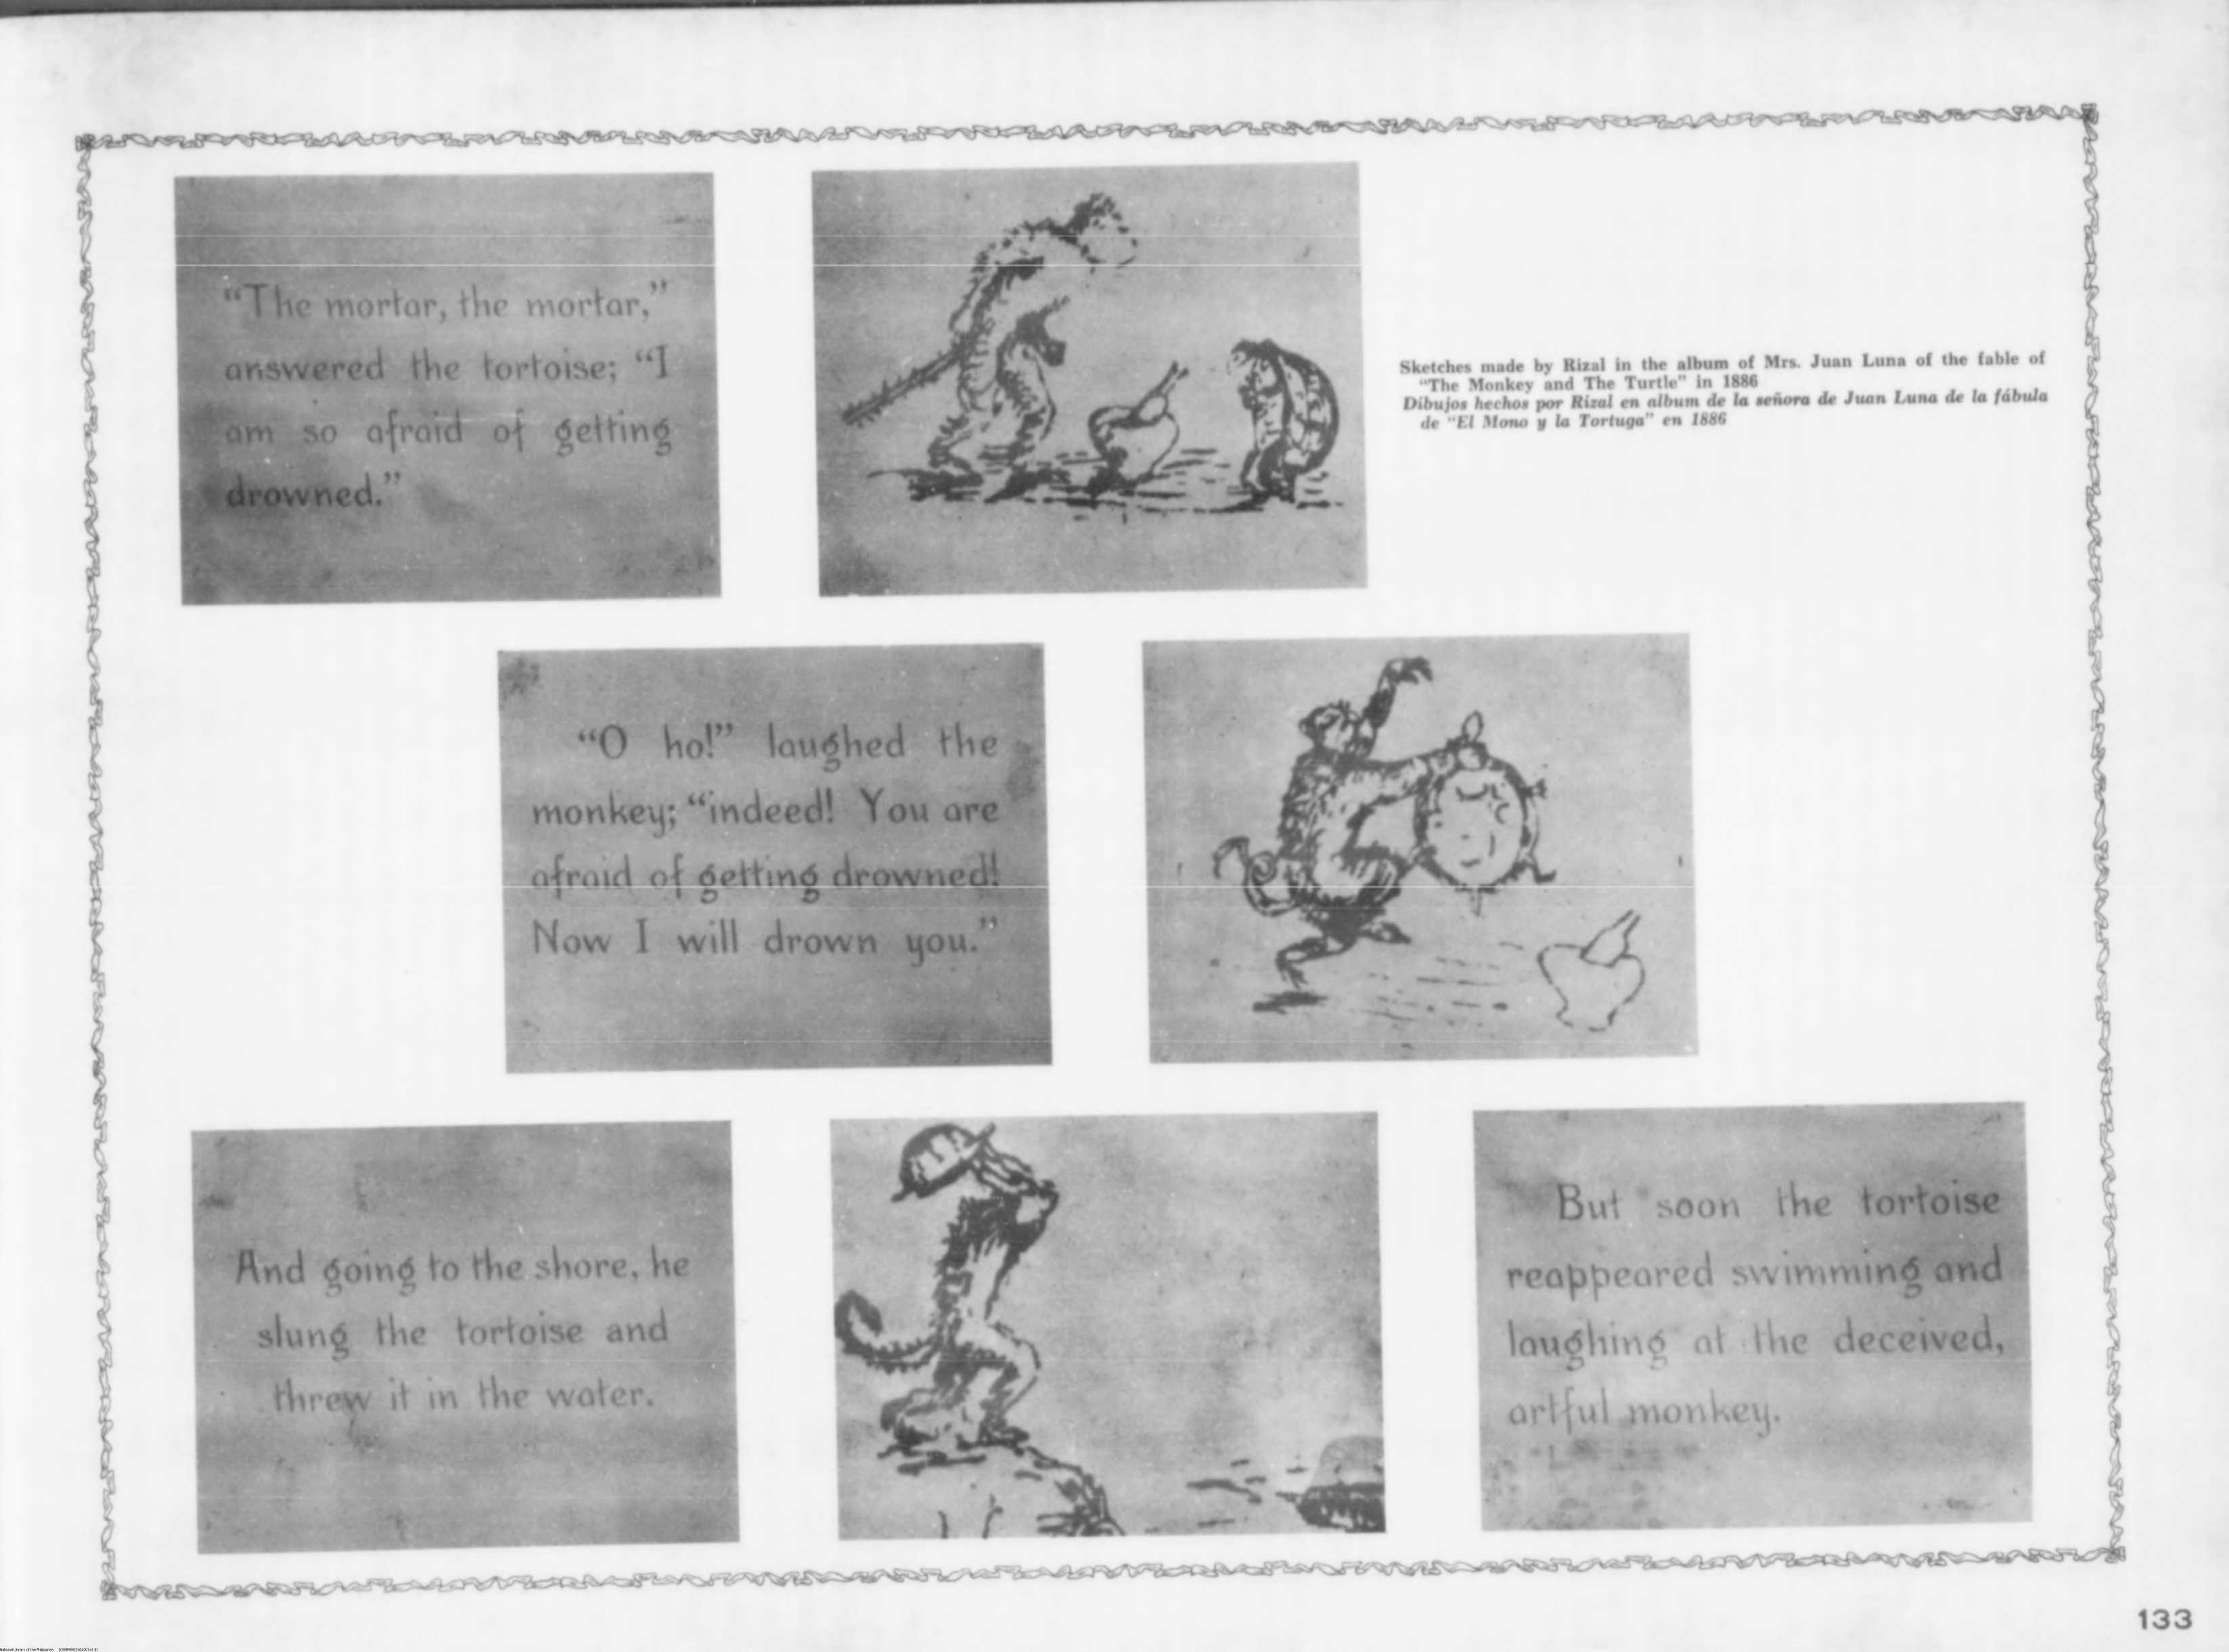 “The mortar, the mortar,”
answered the tortoise; “I
am so afraid of getting
drowned.”
Sketches made by Rizal in the album of Mrs. Juan Luna of the fable of
“The Monkey and The Turtle” in 1886
Dibujos hechos por Rizal en album de la señora de Juan Luna de la fábula
de “El Mono y la Tortuga” en 1886
“O ho!” laughed the
monkey; “indeed! You are
afraid of getting drowned!
Now I will drown you.”
And going to the shore, he
slung the tortoise and
threw it in the water.
But soon the tortoise
reappeared swimming and
laughing at the deceived,
artful monkey.
133
National Library of the Philippines